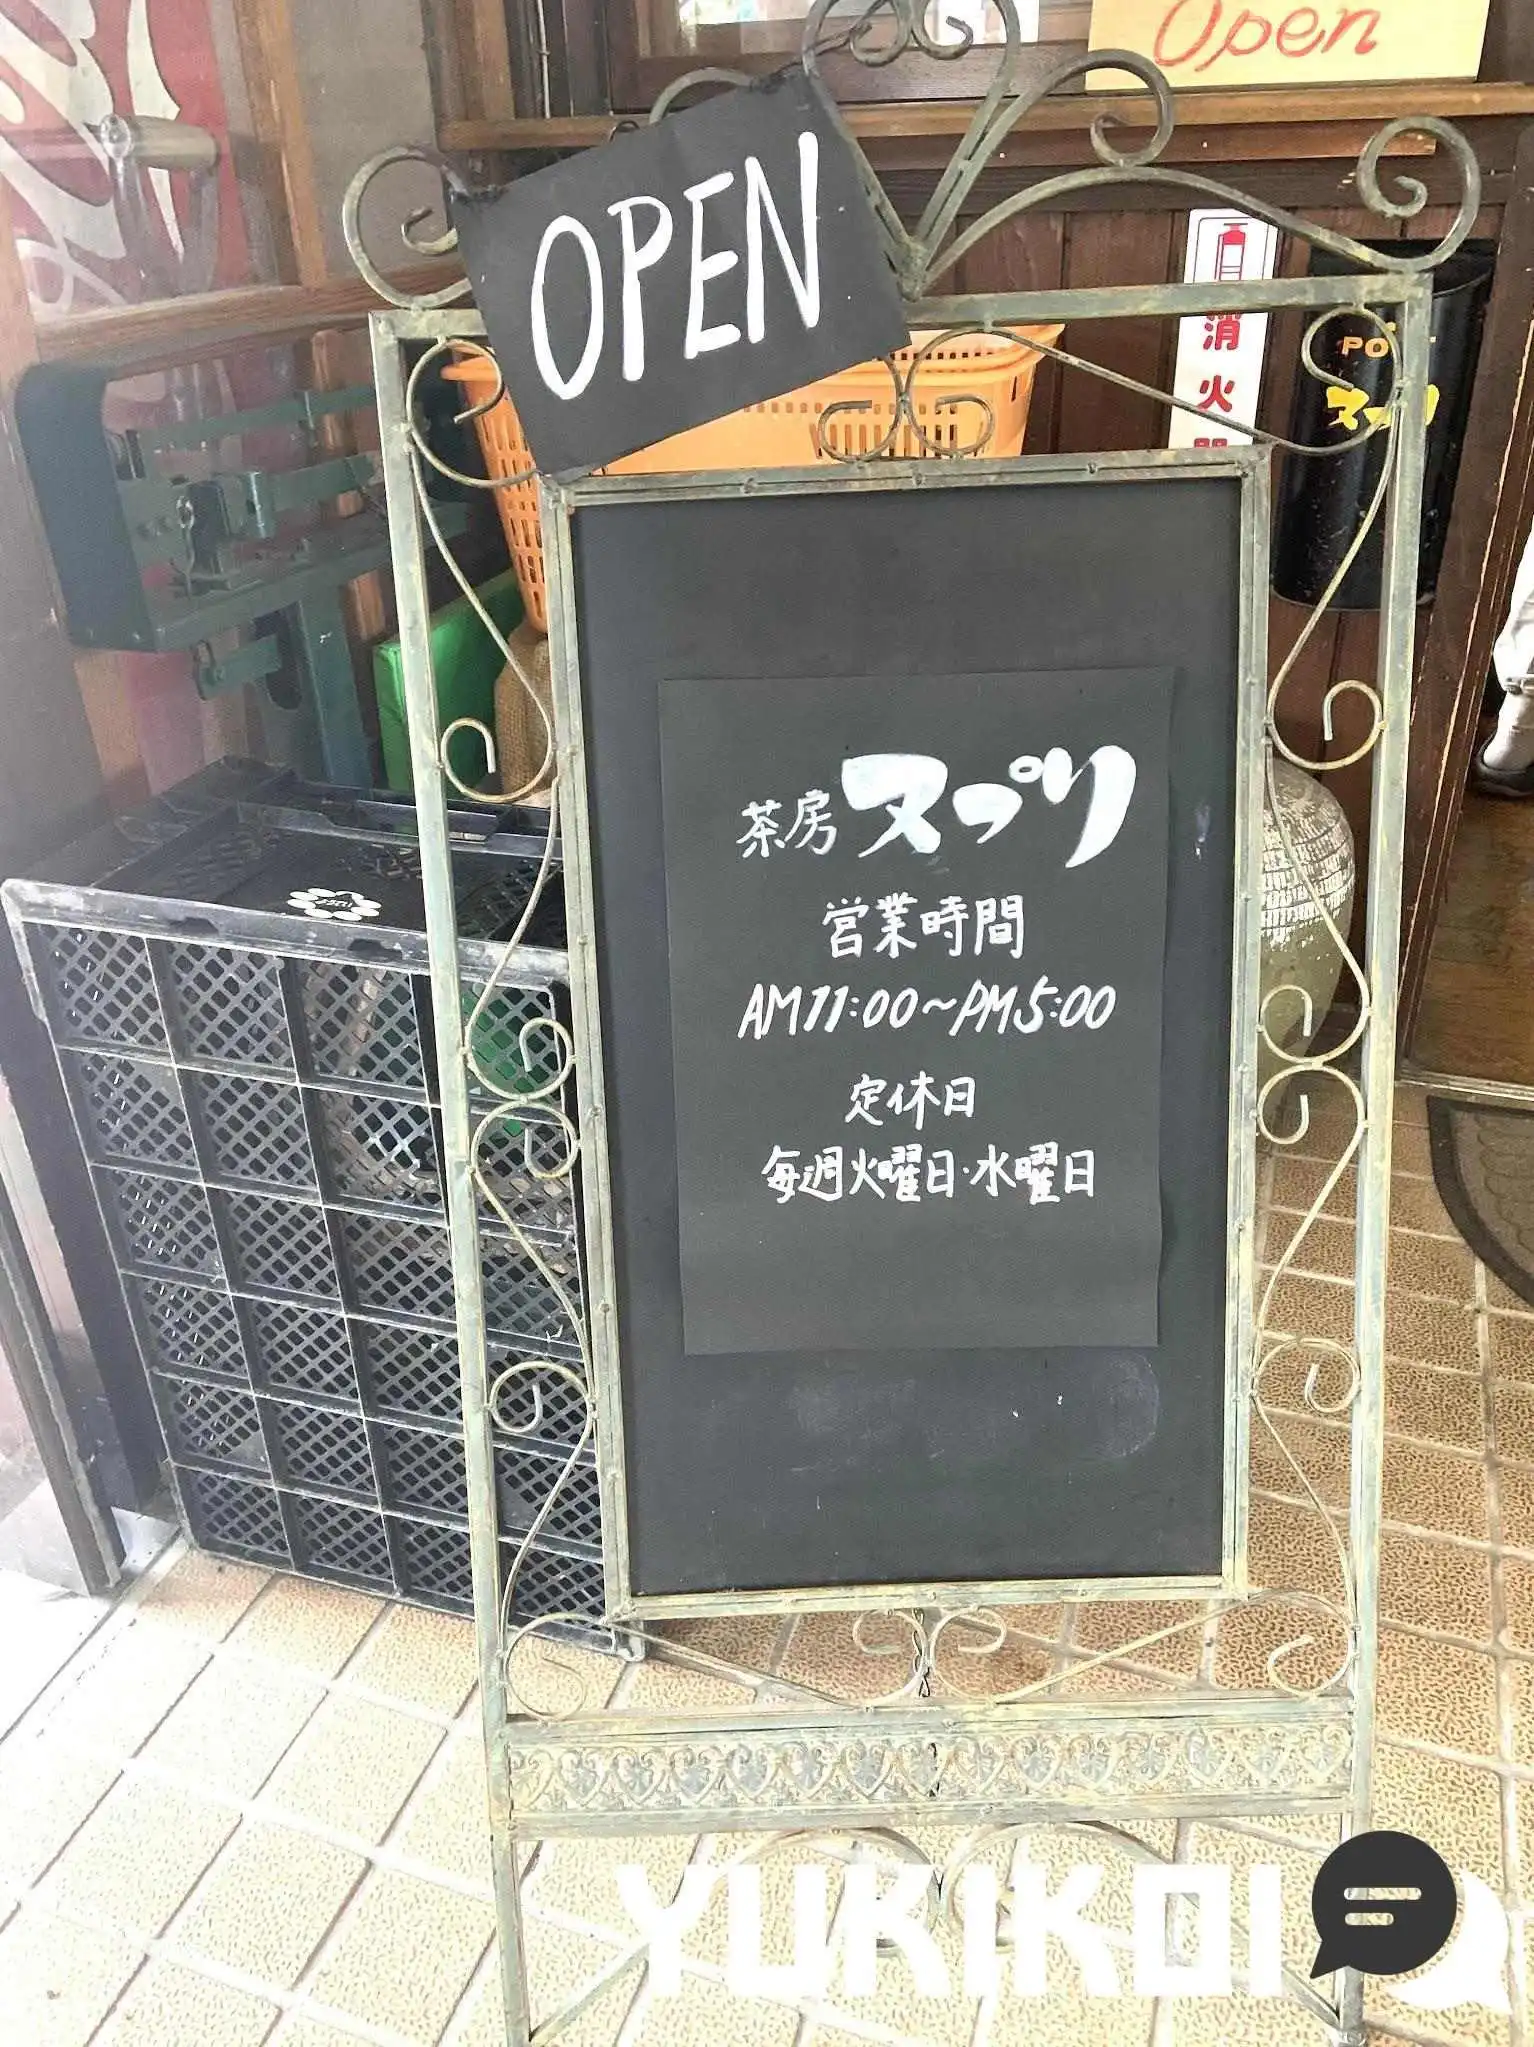 Open
OPEN
消火
POST
ヌプリ
茶房 ヌプリ
営業時間
AM11:00~PM5:00
定休日
毎週火曜日・水曜日
YUKIKOI